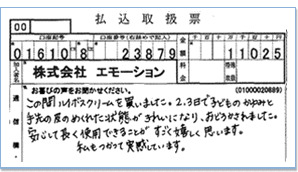 払込取扱票
00
口座記号 口座番号(右詰めで記入) 金額 千 百 十 万 千 百 十 円
01610 8 23879 11025
加入者名 株式会社 エモーション 料金
通信欄
お喜びの声をお聞かせください。 (01000020689)
この間ルボスクリームを買いました。2.3日で子どものかゆみと
手先の皮のめくれた状態がきれいになり、おどろかされました。
安心して長く使用できることがすごく嬉しく思います。
私もつかって実感しています。